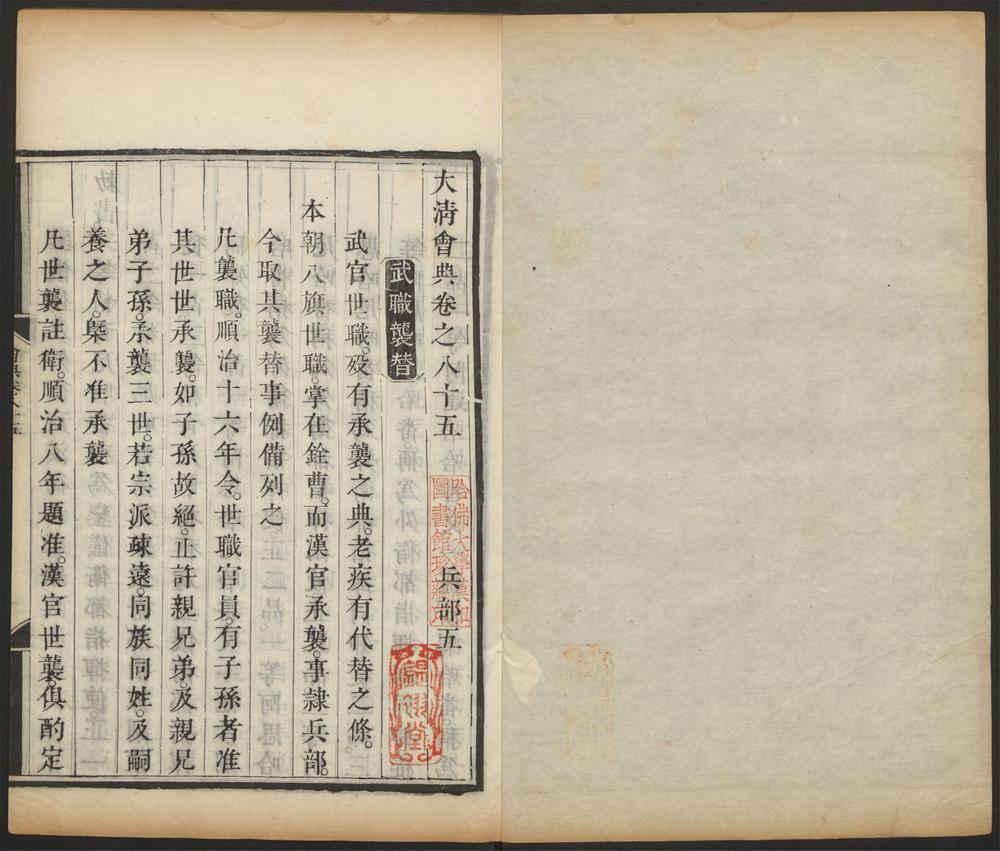 大淸會典卷之八十五　兵部五
武職襲替
武官世職。歿有承襲之典。老疾有代替之條。
本朝八旗世職。掌在銓曹。而漢官承襲。事隷兵部。
今取其襲替事例備列之。
凡襲職。順治十六年令。世職官員。有子孫者准
其世世承襲。如子孫故絕。止許親兄弟。及親兄
弟子孫。承襲三世。若宗派疎遠。同族同姓。及嗣
養之人。槩不准承襲
凡世襲註衛。順治八年題准。漢官世襲。俱酌定
哈佛大學漢和
圖書館珍藏印